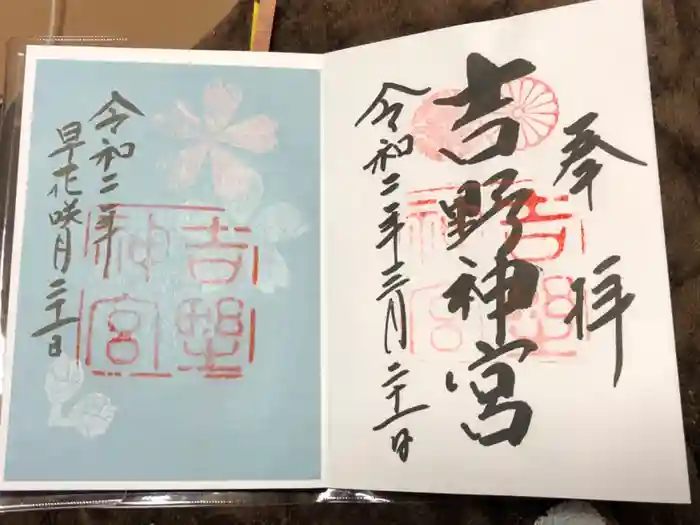 奉拝
吉野神宮
令和二年三月二十一日
吉野
神宮
令和二年
早花咲月二十一日
吉野
神宮